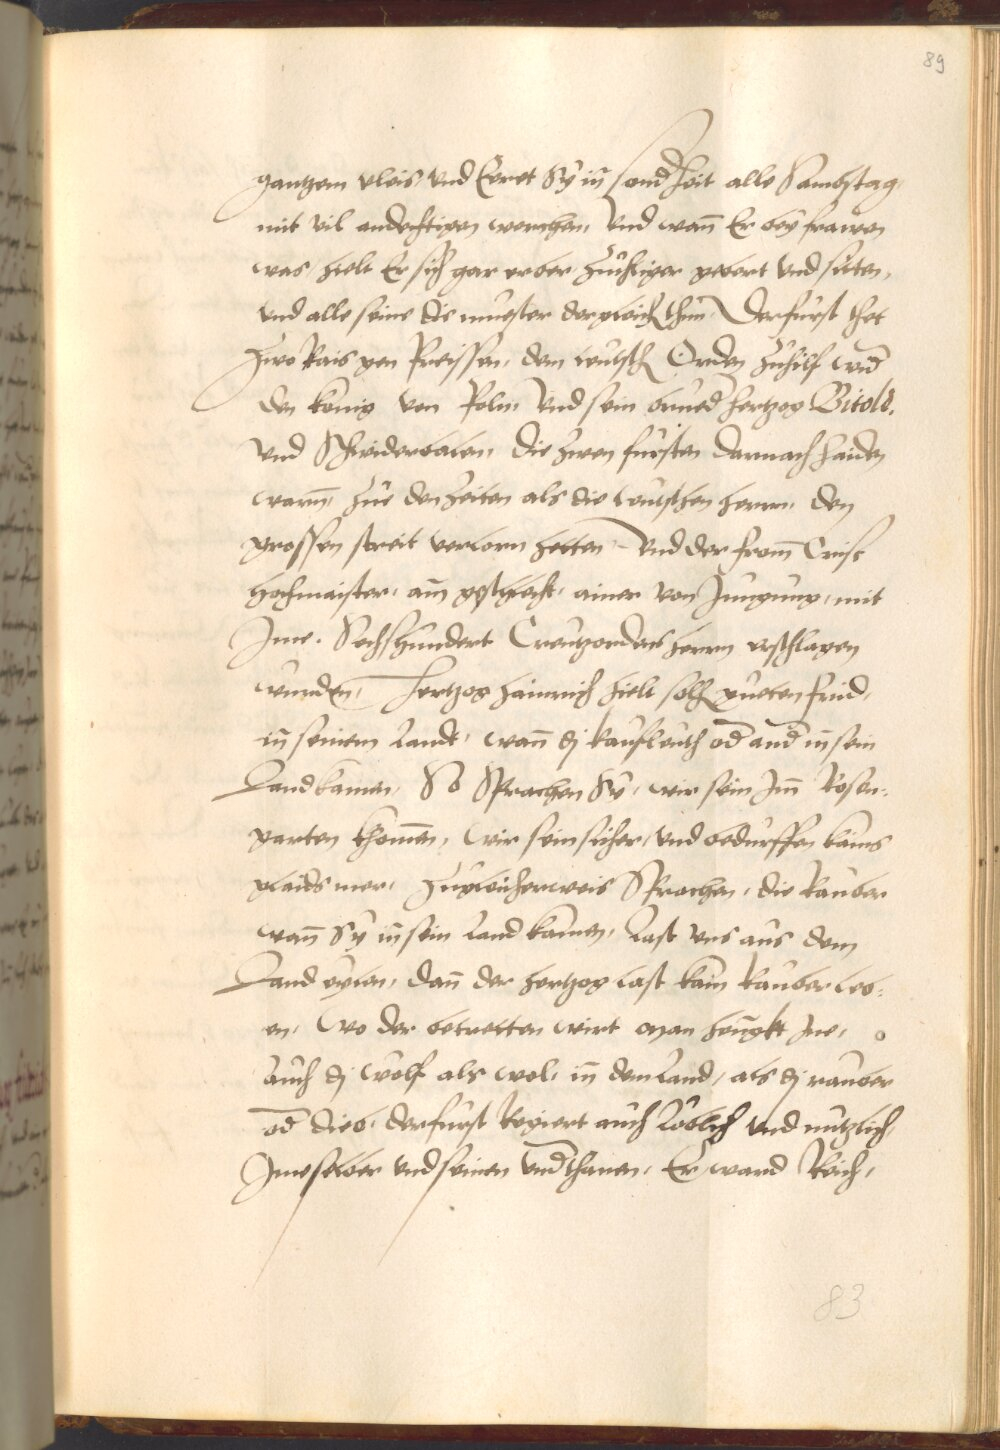 89
gantzem vleis vnd Eeret Sy iñ sond̃hait alle Sambstag,
mit vil andechtigen werchen, Vnd wañ Er bey frawen
was, hielt Er sich gar erber, züchtiger gebert vnd siten,
vnd alle seine die muester dergleich thun, Der fürst thet
zwo Rais gen Preissen, dem teutsch Orden zuhilf wid̃
den konig von Poln, Vnd sein brued̃ hertzog Bitold,
vnd Schwidergalen, die zwen fürsten darnach haiden
warñ, zue den Zeiten als die teutschen herrn, den
grossen streit verlorn hetten, Vnd der from̃ Crist
hochmaister, am geschlecht, ainer von Jungung, mit
Jme, Sechshundert Creutzordens herrn erschlagen
wurden, Hertzog Hainrich hielt solh gueten frid,
iñ seinem Landt, wañ dj kaufleuth od̃ and̃ iñ sein
Land kamen, So Sprachen Sy, wir sein Jm̃ Rosen-
garten khom̃en, wir sein sicher, vnd bedurffen kains
glaids mer, Zugleicherweis Sprachen, die Rauber
wañ Sy iñ sein Land kamen, Last vns aus dem
Land eylen, dañ der hertzog last kain Rauber leb-
en, wo der betretten wirt man hengkt Jne,
auch dj wolf als wol, iñ dem Land, als dj rauber
od̃ dieb, der fürst Regiert auch Löblich vnd nutzlich,
Jme selber vnd seinen vnd̃thanen, Er ward Reich,
83